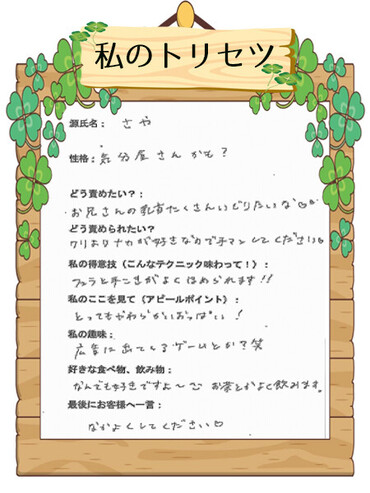 私のトリセツ
源氏名： さや
性格： 気分屋さんかも？
どう責めたい？：
お兄さんの乳首たくさんいじりたいな♡♡
どう責められたい？
クリよりナカが好きなので手マンしてください♡
私の得意技（こんなテクニック味わって！）：
フェラと手コキがよくほめられます！！
私のここを見て（アピールポイント）：
とってもやわらかいおっぱい！
私の趣味：
広告に出てくるゲームとか？笑
好きな食べ物、飲み物：
なんでも好きですよ〜 お茶とかよく飲みます。
最後にお客様へ一言：
なかよくしてください♡